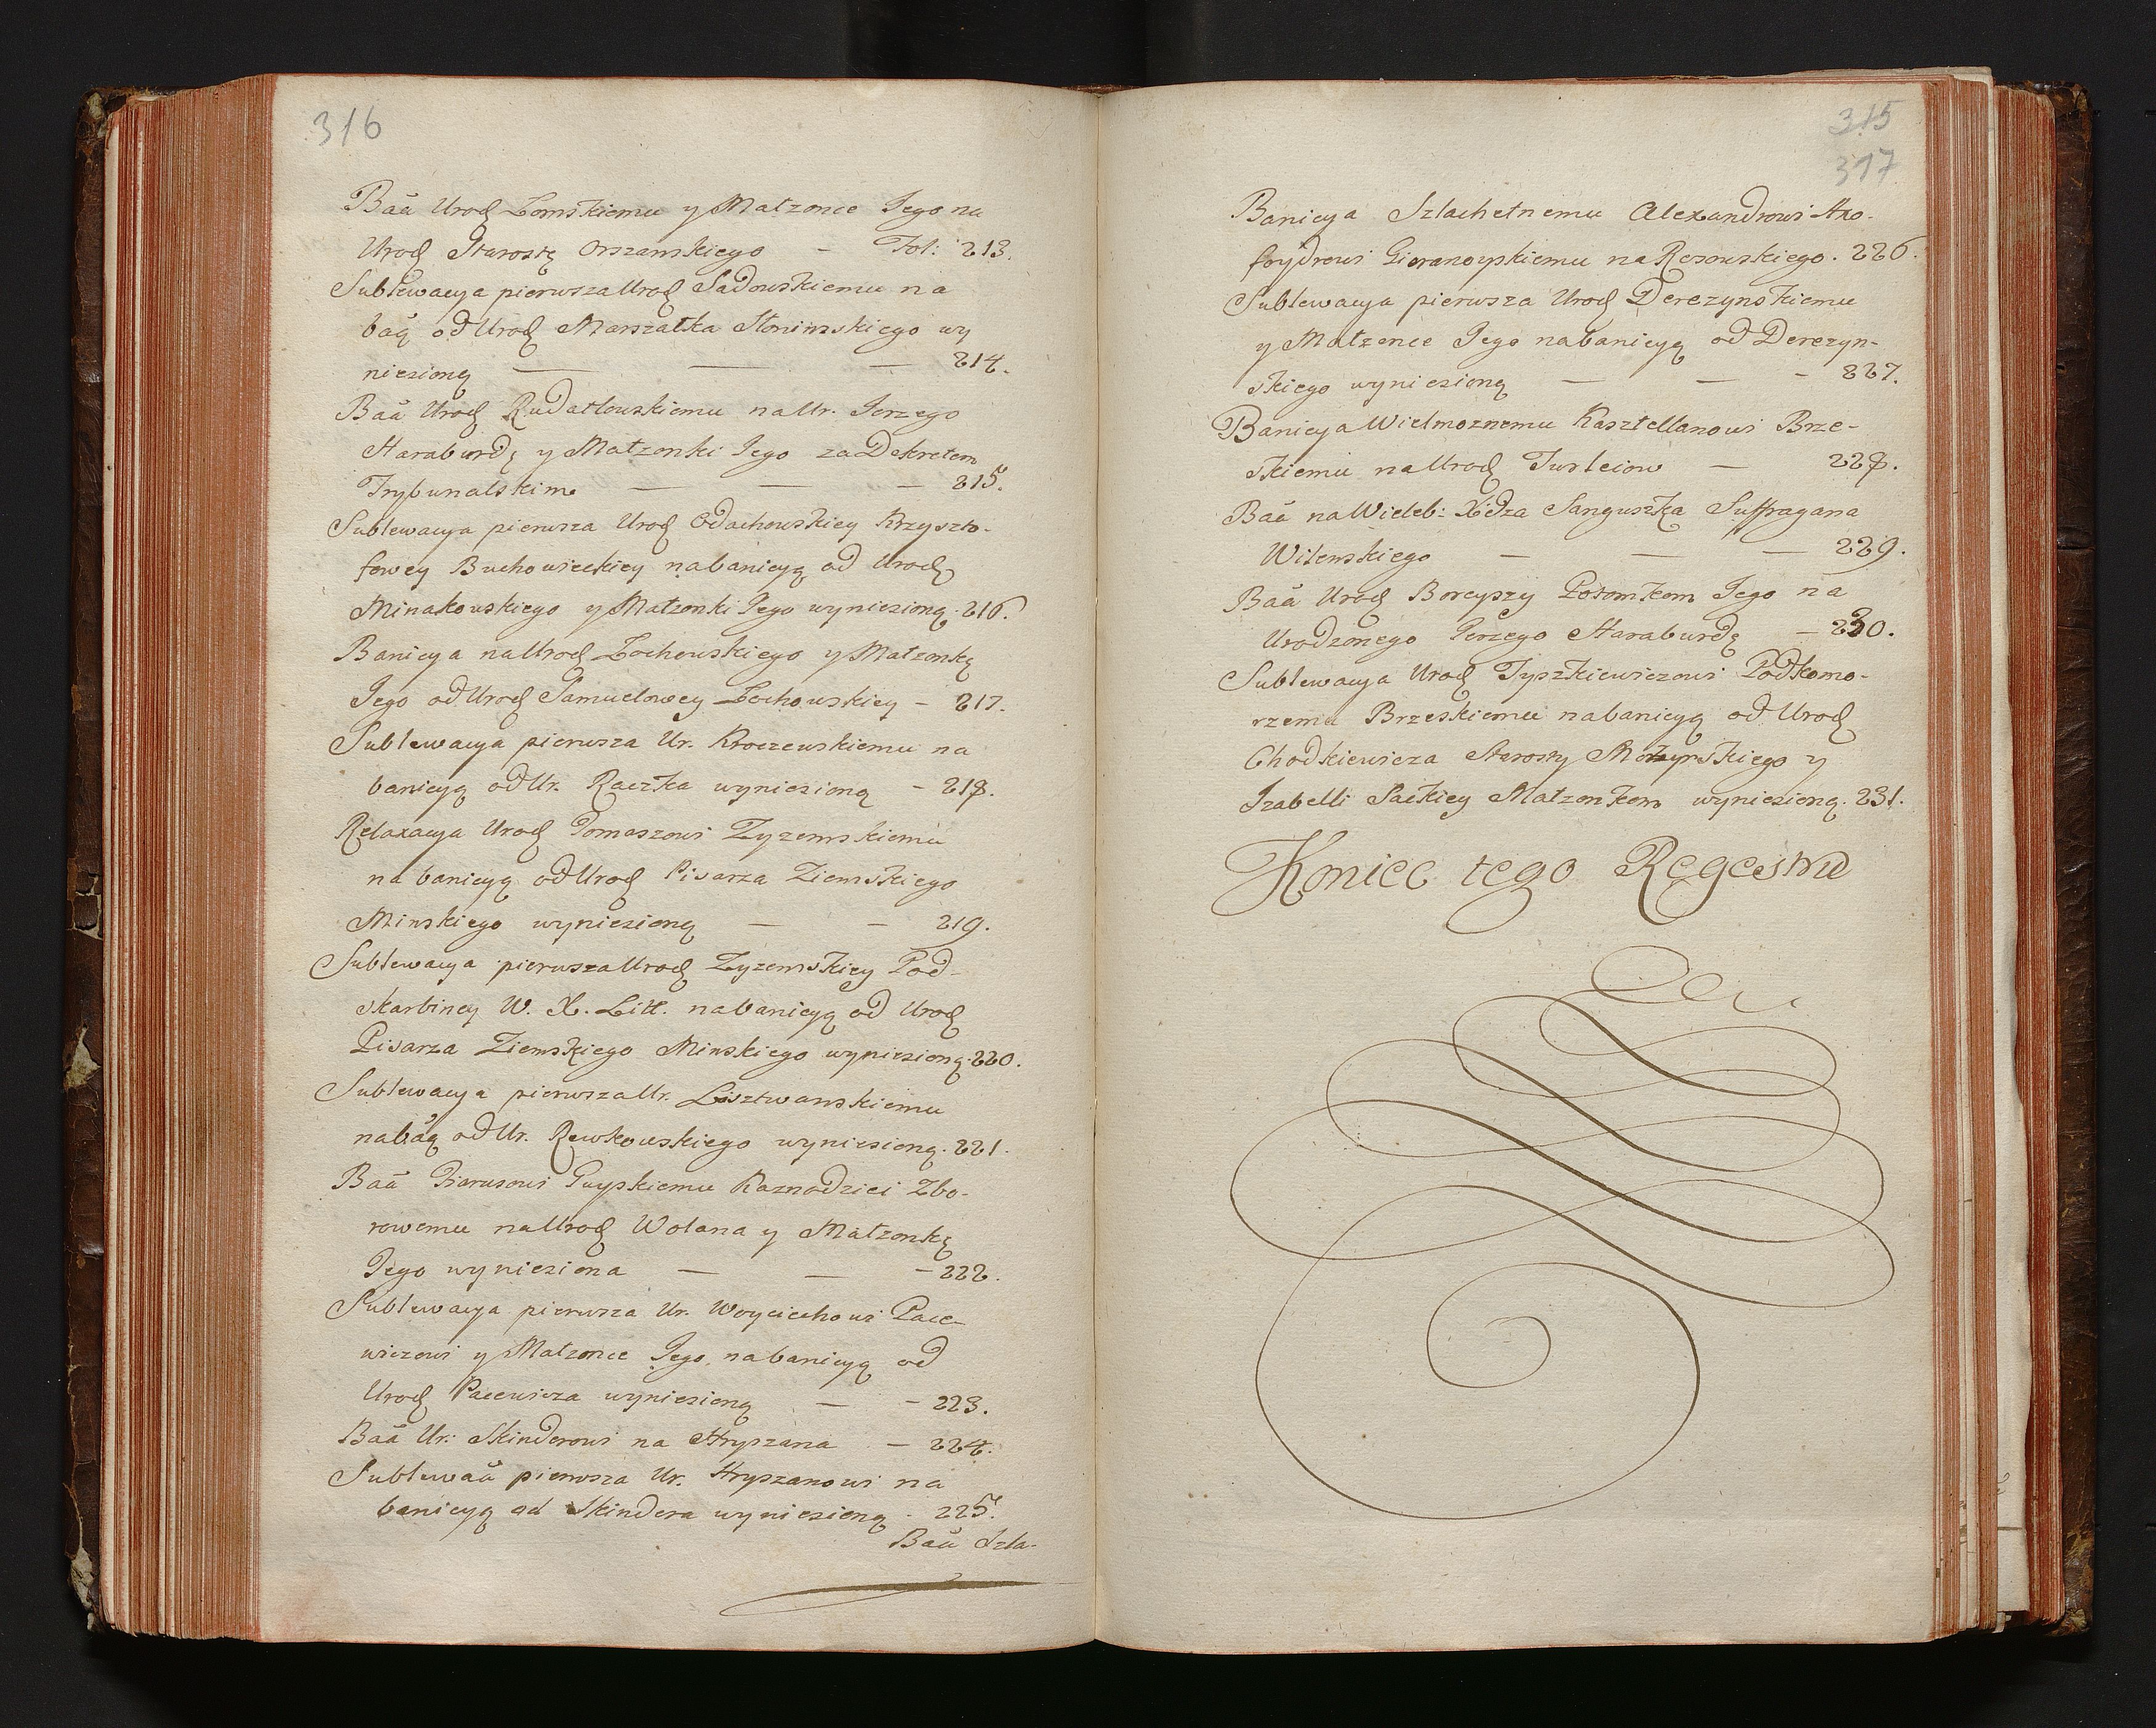 316
Baã Urodz Łomskiemu y Małzonce Jego na
Urodz Starostę Orszanskiego — Fol: 213.
Sublewacya pierwsza Urodz Sadowskiemu na
bãą od Urodz Marszałka Słonimskiego wy
niesioną — — — 214.
Baã Urodz Rudatlowskiemu na Ur. Jerzego
Haraburdę y Małzonki Jego za Dekretem
Trybunalskim — — — 215.
Sublewacya pierwsza Urodz Odachowskiey Krzyszto-
fowey Buchowieckiey na banicyą od Urodz
Minakowskiego y Małzonki Jego wyniesioną. 216.
Banicya na Urodz Zochowskiego y Małzonkę
Jego od Urodz Samuelowey Zochowskiey — 217.
Sublewacya pierwsza Ur. Kroczewskiemu na
banicyą od Ur. Raczka wyniesioną — 218.
Relaxacya Urodz Tomaszowi Zyzemskiemu
na banicyą od Urodz Pisarza Ziemskiego
Minskiego wyniesioną — — 219.
Sublewacya pierwsza Urodz Zyzemskiey Pod-
skarbiney W. X. Litt. na banicyą od Urodz
Pisarza Ziemskiego Minskiego wyniesioną. 220.
Sublewacya pierwsza Ur. Lisztwanskiemu
na bãą od Ur. Rewkowskiego wyniesioną. 221.
Baã Piarusowi Guyskiemu Kaznodziei Zbo-
rowemu na Urodz Wolana y Małzonkę
Jego wyniesiona — — — 222.
Sublewacya pierwsza Ur. Woyciechowi Pace-
wiczowi y Małzonce Jego, na banicyą od
Urodz Pacewicza wyniesioną — — 223.
Baã Ur: Skinderowi na Hryszana — 224.
Sublewaã pierwsza Ur. Hryszanowi na
banicyą od Skindera wyniesioną - 225.
Baã Szla-
315
317
Banicya Szlachetnemu Alexandrowi Hro-
foydrowi Gieranoyskiemu na Rosowskiego. 226.
Sublewacya pierwsza Urodz Derezynskiemu
y Małzonce Jego na banicyą od Derezyn-
skiego wyniesioną — — — 227.
Banicya Wielmoznemu Kasztellanowi Brze-
skiemu na Urodz Turleiow — 228.
Baã na Wieleb: Xdza Sanguszka Suffragana
Wilenskiego — — — 229.
Baã Urodz Boreyszy Potomkom Jego na
Urodzonego Jerzego Haraburdę — 230.
Sublewacya Urodz Tyszkiewiczowi Podkomo-
rzemu Brzeskiemu na banicyą od Urodz
Chodkiewicza Starosty Mozyrskiego y
Izabelli Packiey Małzonkom wyniesioną. 231.
Koniec tego Regestru